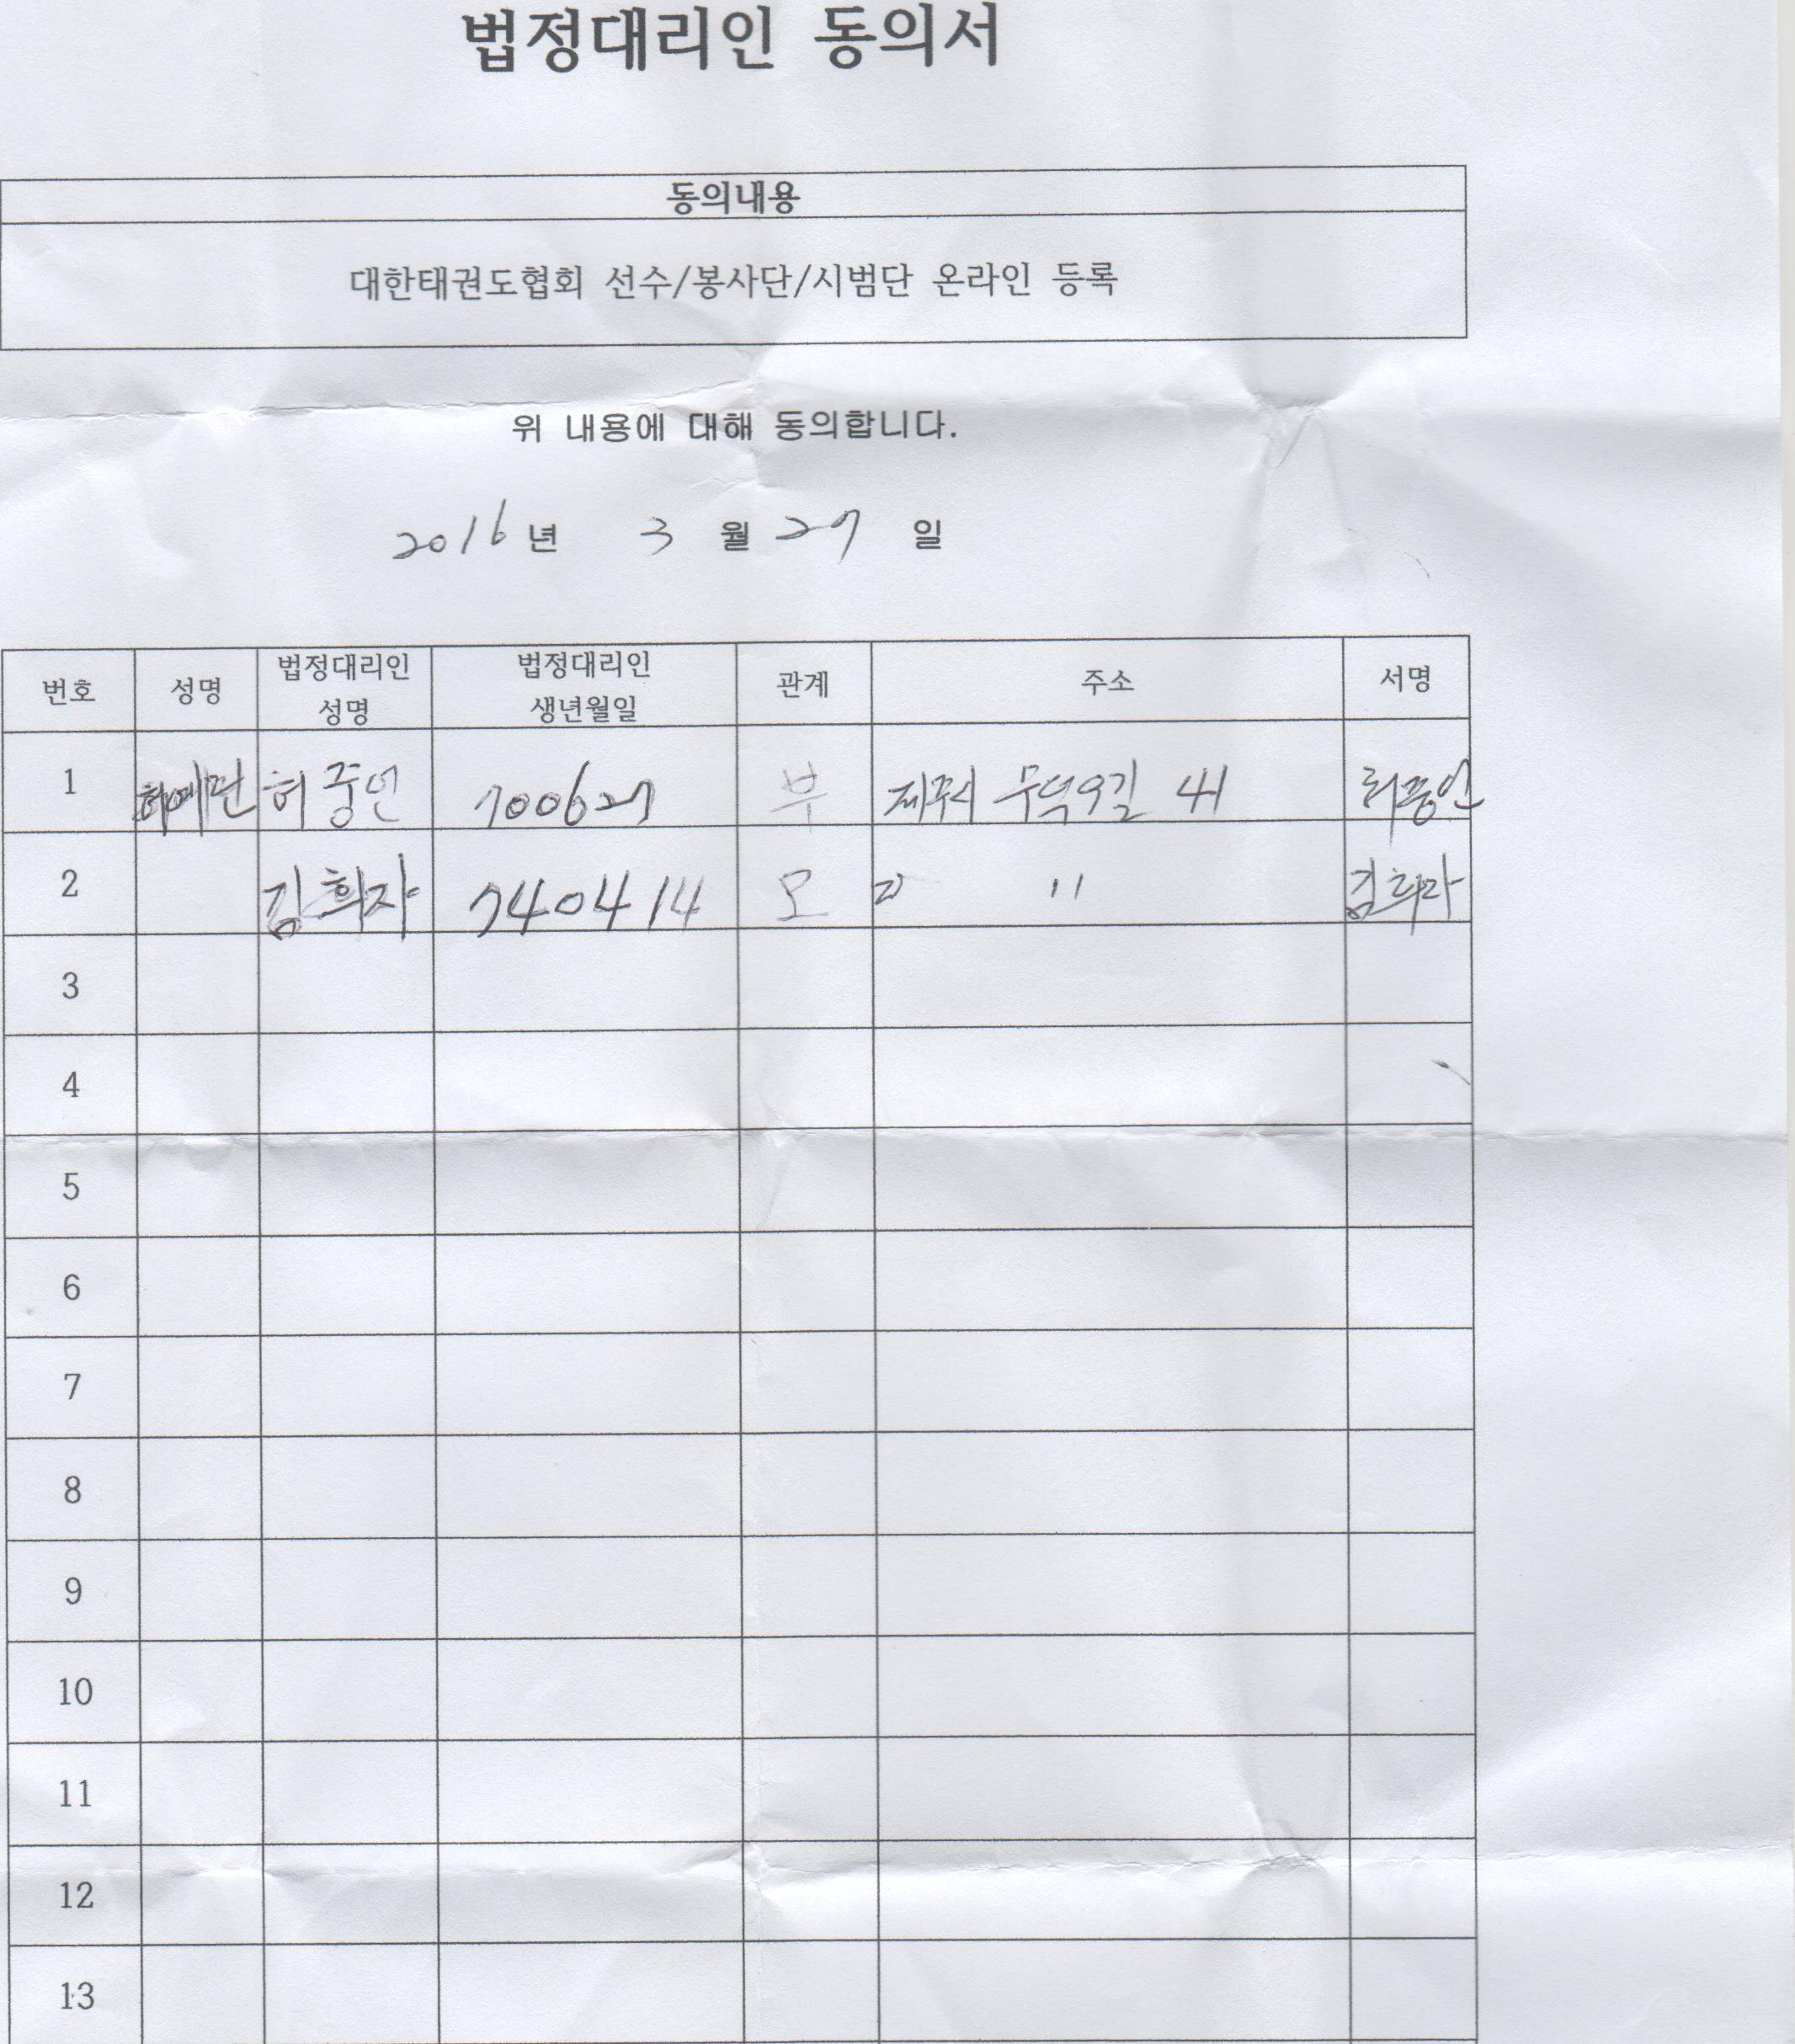 법정대리인 동의서
동의내용
대한태권도협회 선수/봉사단/시범단 온라인 등록
위 내용에 대해 동의합니다.
2016년 3월 27일
번호 성명 법정대리인 성명 법정대리인 생년월일 관계 주소 서명
1 허예편 허중인 700627 부 무덕9길 41 허중인
2 김희자 740414 모 〃 김희자
3
4
5
6
7
8
9
10
11
12
13